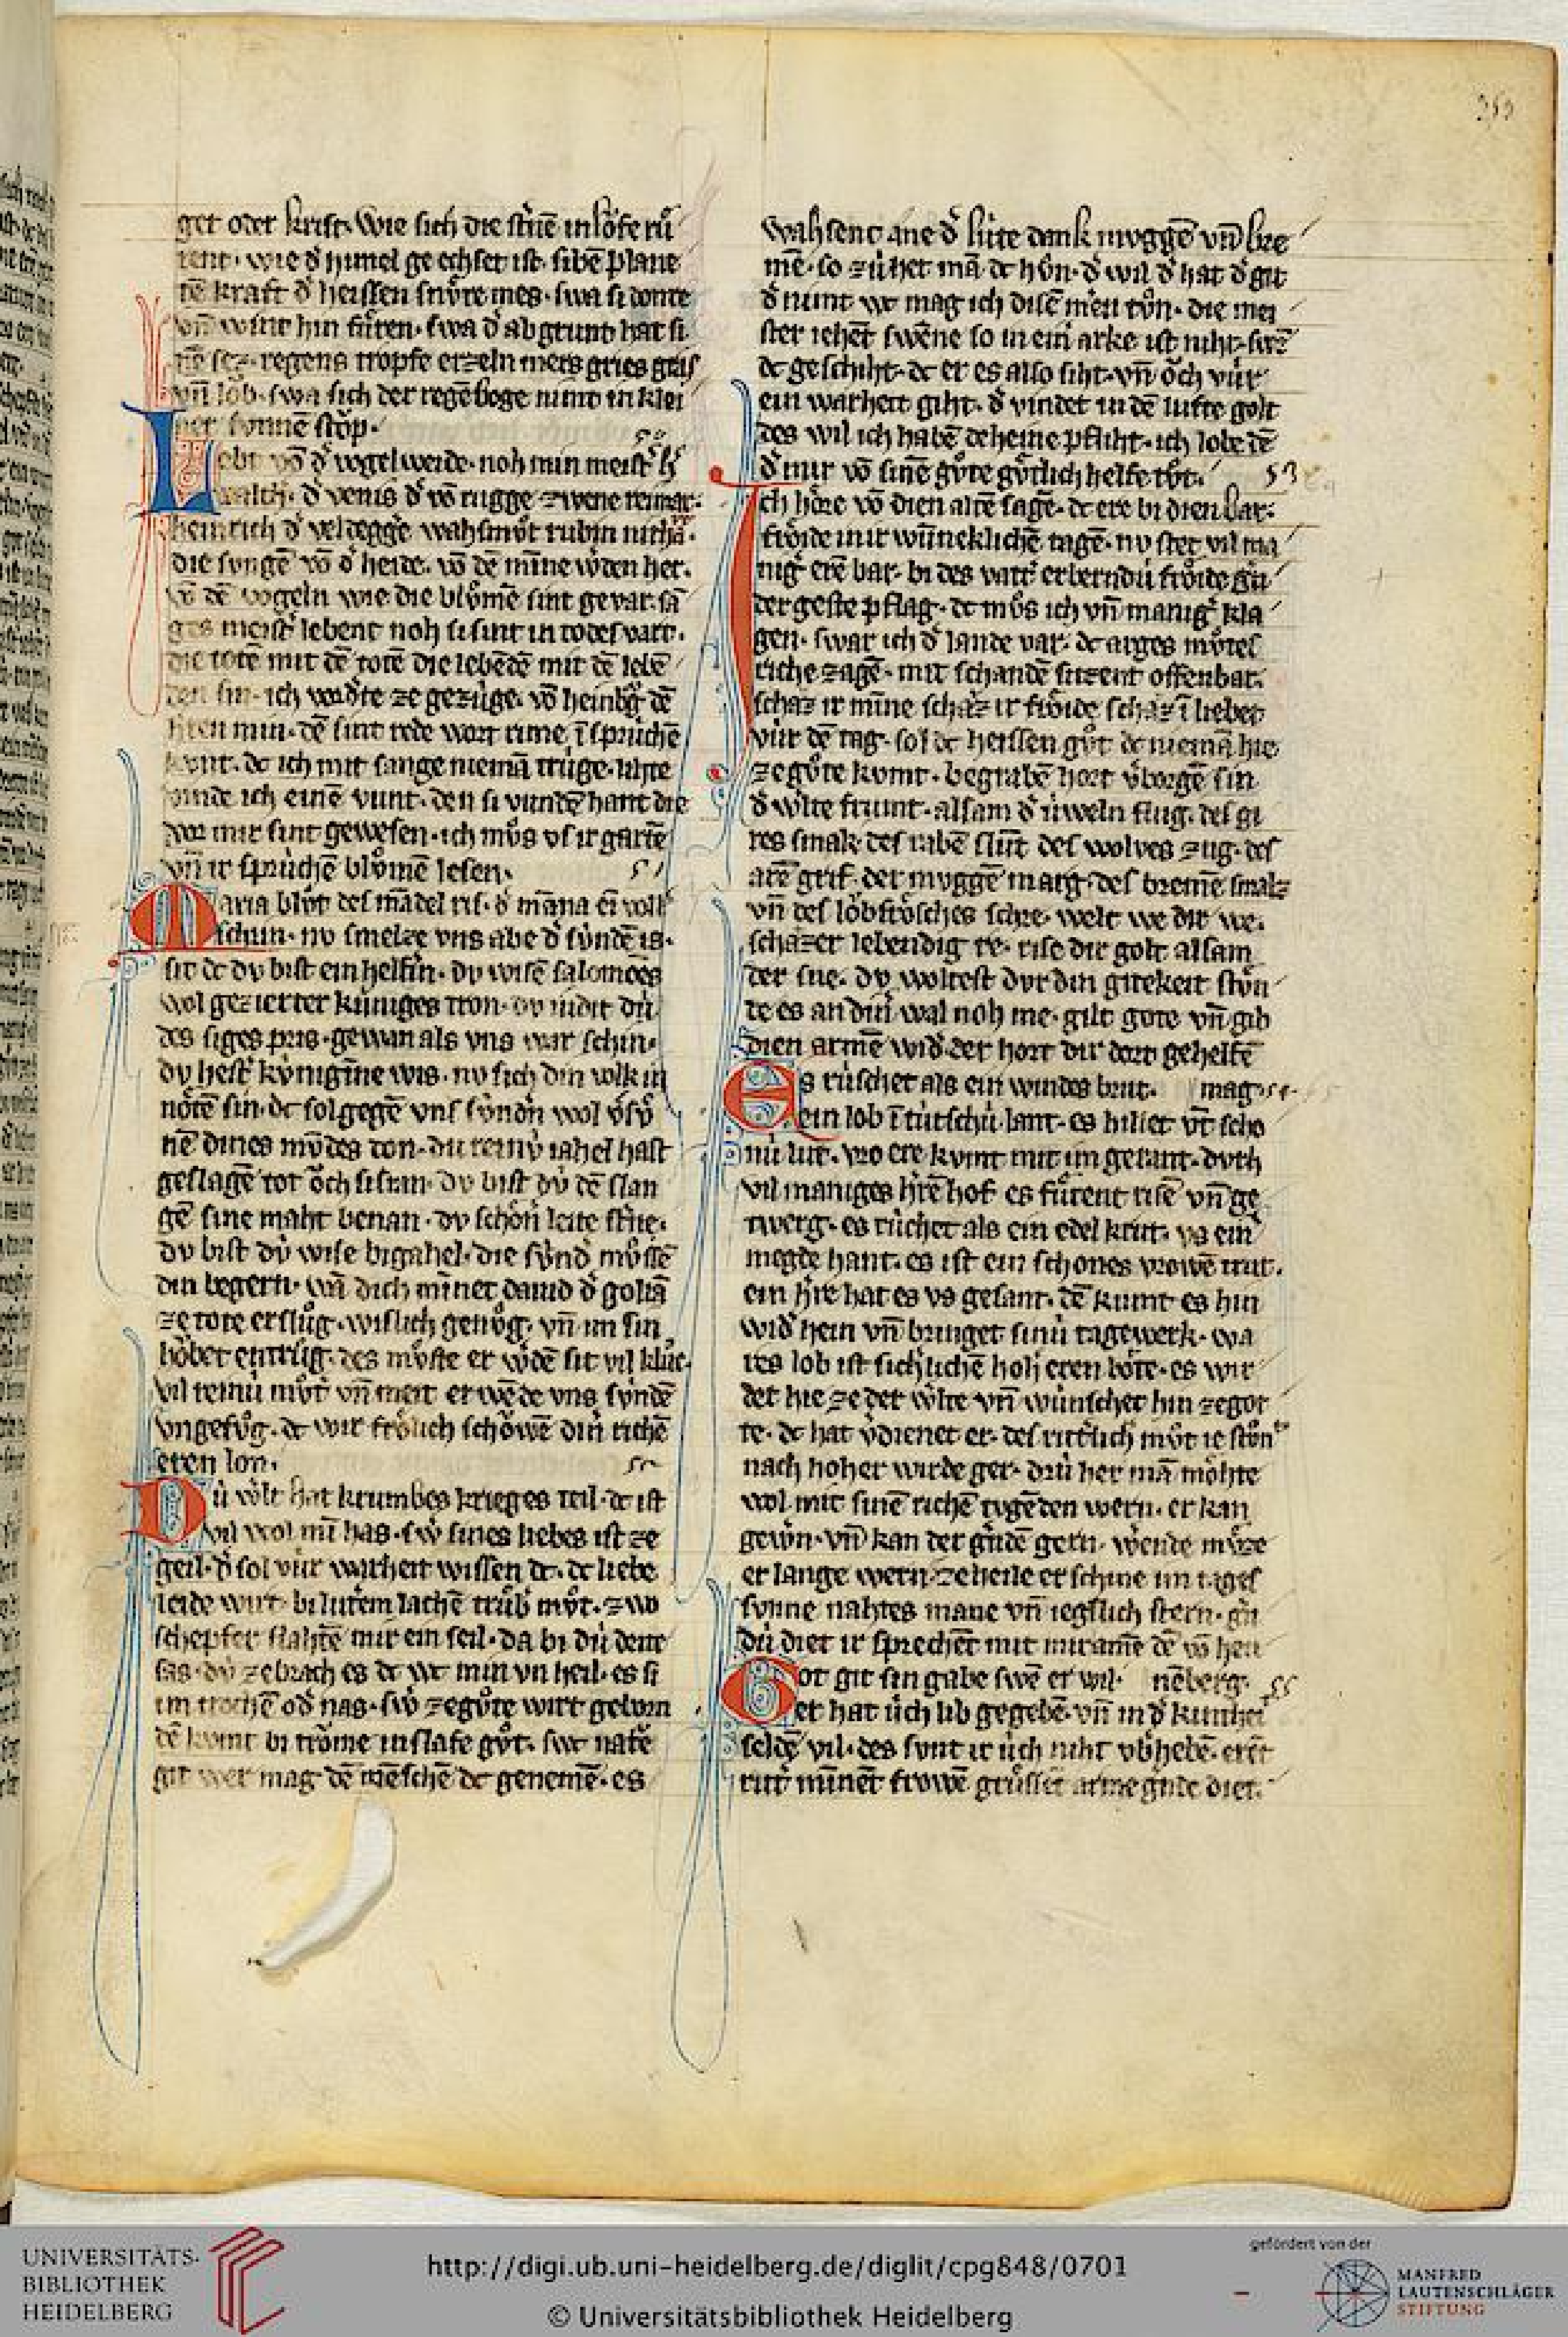 get oder krist. Wie sich die st'nē in lȯfe rů
rent. wie d' himel geechset ist. sibē plane
tē kraft d' heissen snůre mes. swa si donre
vn̄ wint hin fůren. swa d' abgrunt hat si
nē sez. regens tropfe erzeln mers gries gras
vn̄ lǒb. swa sich der regēboge nimt in klei
ner sonnē stǒp.
50
Lebt vō d' vogelweide. noh min meist' h'
walth'. d' venis d' vō rugge zwene reimar.
heinrich d' veldegge wahsmůt rubin nithā.
die sungē vō d' heide. vō dē minne w'den her.
vō dē vogeln wie die blůmē sint gevar. sā
ges meist' lebent noh si sint in todes vart.
die totē mit dē totē die lebēdē mit dē lebē
den sin. ich vord'te ze gezüge. vō heinb'g dē
h'ren min. dē sint rede wort rime ī sprüchē
kunt. dc ich mit sange niemā trüge. lihte
vinde ich einē vunt. den si vundē hant die
vor mir sint gewesen. ich můs vs ir gartē
vn̄ ir sprüchē blůmē lesen.
51
Maria blůt des mādel ris. d' māna ein voll'
schrin. nv smelze vns abe d' sündē is.
sit dc dv bist ein helfin. dv wisē salomōes
wol gezierter küniges tron. dv iudit dü
des siges pris. gewan als vns war schin.
dv hest' küniginne wis. nv sich din volk in
nötē sin. dc sol gegē vns sündn wol v'sů
nē dines mvdes don. du reinv iahel hast
geslagē tot ǒch sisran. dv bist dü dē slan
gē sine maht benan. dv schön leite st'ne.
dv bist dü wise bigahel. die sünd' můssē
din begern. wā dich minnet dauid d' goliā
ze tote erslůg. wislich genůg. vn̄ im sin
höbet entrůg. des můste er w'dē sit vil klůc.
vil reinü můt' vn̄ meit erwēde vns sündē
vngefůg. dc wir frölich schǒwē din richē
eren lon.
52
Dü w'lt hat krumbes krieges teil. dc ist
vil wol min has. sw' sines liebes ist ze
geil. d' sol vür warheit wissen dc. dc liebe
leide wirt. bi lutem lachē trůb můt. zwo
schepfer flahtē mir ein seil. da bi dü drite
sas. dü zebrach es dc wc min vn heil. es si
im trochē od' nas. sw' ze gůte wirt geborn
dē komt bi trǒme in slafe gůt. swc nature
git wer mag dē mēschē dc genemē. es
wahsent ane d' lüte dank muggē vn̄ bre
mē. so zühet mā dc hůn. d' wil d' hat d' git
d' nimt wc mag ich disē m'en tůn. die mei
ster iehēt swēne so in ein' arke ist niht. swē
dc geschiht. dc er es also siht. vn̄ ǒch vür
ein warheit giht. d' vindet in dē lufte golt
des wil ich habē deheine pfliht. ich lobe dē
d' mir vō sinē gůte gůtlich helfe tůt.
53
Ich höre vō dien altē sagē. dc ere bi dien bar.
fröide mit wünneklichē tagē. nv stet vil ma
nig' erē bar. bi des vatt' erberndü fröide gů
der geste pflag. dc můs ich vn̄ manig' kla
gen. swar ich d' lande var. dc arges můtes
riche zagē. mit schandē sitzent offenbar.
schaz ir minne schaz ir fröide. schaz ī lieber
vür dē tag. sol dc heissen gůt dc niemā hie
ze gůte komt. begrabē hort v'borgē sin
d' w'lte frunt. alsam d' üweln flug. des gi
res smak des rabē slūt des wolves zug. des
arē grif. der muggē marg. des bremē smalz
vn̄ des lǒbfrosches schre. welt we dir we.
schazer lebendig re. rise dir golt alsam
der sne. dv woltest dvr din gitekeit stůn
de es an din' wal noh me. gilt gote vn̄ gib
dien armē wid'. der hort dir dort gehelfē
Es rüschet als ein windes brut. mag. 54
ein lob ī tütschü lant. es hillet vt scho
nü lut. vro ere kvmt mit im gerant. dvrh
vil maniges h'rē hof. es fůrent risē vn̄ ge
twerg. es rüchet als ein edel krut. vs ein'
megde hant. es ist ein schones vrowē trut.
ein h're hat es vs gesant. dē kumt es hin
wid' hein vn̄ bringet sinü tagewerk. wa
res lob ist sich'lichē hoh' eren bote. es wir
det hie ze der w'lte vn̄ wünschet hin ze got
te. dc hat v'dienet er. des ritt'lich můt ie stůnt
nach hoher wirde ger. drü her mā möhte
wol mit sinē richē tvgēden wern. er kan
gew'n. vn̄ kan der g'ndē gern. w'ende můze
er lange wern. ze heile er schine im tages
sunne nahtes mane vn̄ iegslich stern. g'n
dü diet ir sprechēt mit mir amē dē vō hen
nēberg. 55
Got git sin gabe swē er wil.
er hat üch lib gegebē. vn̄ in d' kintheit
seldē vil. des sunt ir üch niht vb'hebē. erēt
ritt' minnēt frowē grůssēt arme g'nde diet.
UNIVERSITÄTS-
BIBLIOTHEK
HEIDELBERG
http://digi.ub.uni-heidelberg.de/diglit/cpg848/0701
© Universitätsbibliothek Heidelberg
gefördert von der
MANFRED
LAUTENSCHLÄGER
STIFTUNG